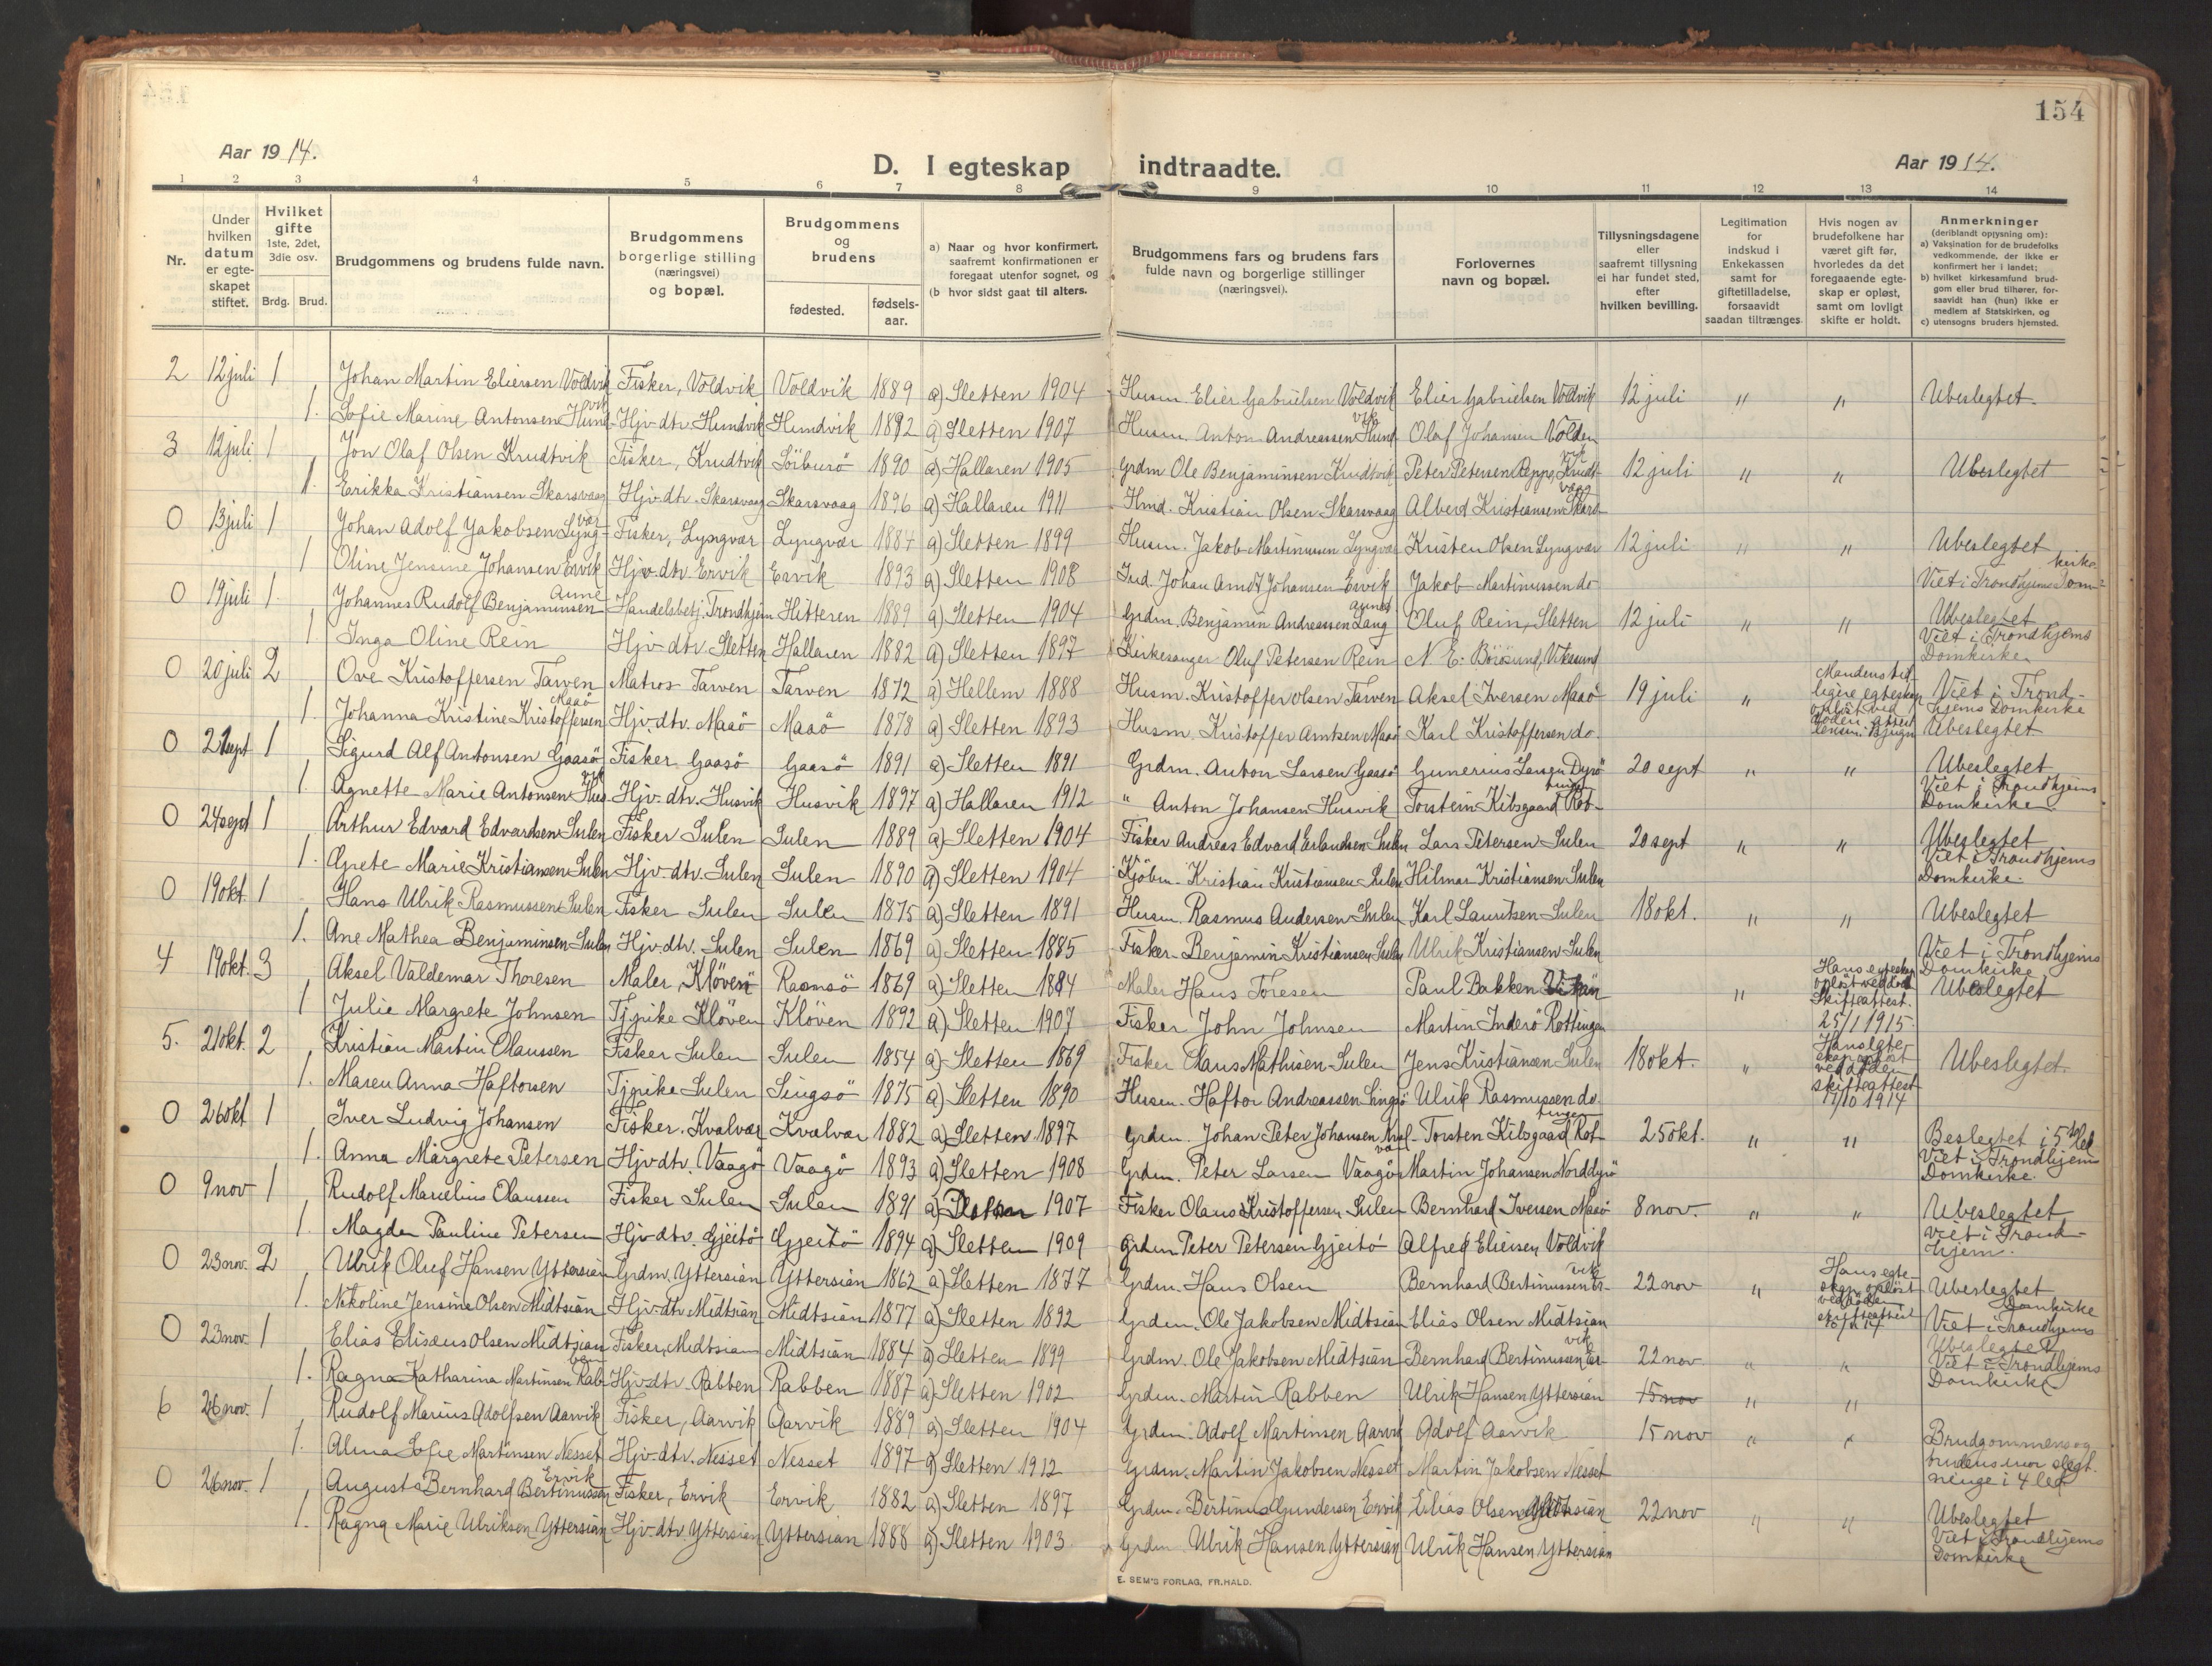 154
Aar 1914.
D. I egteskap indtraadte.
Aar 1914.
1 2 3 4 5 6 7 8 9 10 11 12 13 14
Nr.
Under hvilken datum er egteskapet stiftet.
Hvilket gifte 1ste, 2det, 3die osv.
Brdg. Brud.
Brudgommens og brudens fulde navn.
Brudgommens borgerlige stilling (næringsvei) og bopæl.
Brudgommens og brudens
fødested.
fødselsaar.
a) Naar og hvor konfirmert, saafremt konfirmationen er foregaat utenfor sognet, og
(b hvor sidst gaat til alters.
Brudgommens fars og brudens fars fulde navn og borgerlige stillinger (næringsvei).
Forlovernes navn og bopæl.
Tillysningsdagene eller saafremt tillysning ei har fundet sted, efter hvilken bevilling.
Legitimation for indskud i Enkekassen samt for giftetilladelse, forsaavidt saadan tiltrænges
Hvis nogen av brudefolkene har været gift før, hvorledes da det foregaaende egteskap er opløst, samt om lovligt skifte er holdt.
Anmerkninger (deriblandt opysning om):
a) Vaksination for de brudefolks vedkommende, der ikke er konfirmert her i landet;
b) hvilket kirkesamfund brudgom eller brud tilhører, forsaavidt han (hun) ikke er medlem af Statskirken, og
c) utensogns bruders hjemsted.
2 12 juli 1 Johan Martin Eliersen Voldvik Fisker, Voldvik Voldvik 1889 a) Sletten 1904 Husm. Elier Gabrielsen Voldvik Elier Gabrielsen Voldvik 12 juli " " Ubeslegtet.
1. Sofie Marine Antonsen Hundvik Hjv. dtr. Hundvik Hundvik 1892 a) Sletten 1907 Husm. Anton Andreassen Hundvik Olaf Johansen Volden
3 12 juli 1 Jon Olaf Olsen Krudtvik Fisker, Krudtvik 1890 a) Hallaren 1905 Grdm Ole Benjaminsen Krudtvik Peter Petersen Reppe, Krudtvik 12 juli " " Ubeslegtet
1. Erikka Kristiansen Skarsvaag Hjv. dtr. Skarsvaag Skarsvaag 1896 a) Hallaren 1911 Hmd. Kristian Olsen Skarsvaag Alberd Kristiansen Skarsvaag
0 13 juli 1 Johan Adolf Jakobsen Lyngvær Fisker, Lyngvær Lyngvær 1884 a) Sletten 1899 Husm. Jakob Martinussen Lyngvær Kristen Olsen Lyngvær 12 juli " " Ubeslegtet
1 Oline Jensine Johansen Ervik Hjv. dtr. Ervik Ervik 1893 a) Sletten 1908 Ind. Johan Arndt Johansen Ervik Jakob Martinussen do Viet i Trondhjems Domkirke
0 19 juli 1. Johannes Rudolf Benjaminsen Aune Handelsbetj. Trondhjem Hitteren 1889 a) Sletten 1904 Grdm. Benjamin Andreassen Langaune Oluf Rein, Sletten 12 juli " " Ubeslegtet
1. Inga Oline Rein Hjv. dtr. Sletten Hallaren 1882 a) Sletten 1897 Kirkesanger Oluf Petersen Rein N. E. Börösund, Viksund Viet i Trondhjems Domkirke
0 20 juli 2 Ove Kristoffersen Tarven Matros Tarven Tarven 1872 a) Hellem 1888 Husm. Kristoffer Olsen Tarven Aksel Iversen Maaö 19 juli " Mandens tidligere egteskap opløst ved døden. Attest Bjugn Viet i Trondhjems Domkirke
1. Johanna Kristine Kristoffersen Maaö Hjv. dtr. Maaö Maaö 1878 a) Sletten 1893 Husm. Kristoffer Arntsen Maaö Karl Kristoffersen do. Ubeslegtet
0 21 sept 1 Sigurd Alf Antonsen Gaasö Fisker Gaasö Gaasö 1891 a) Sletten 1891 Grdm. Anton Larsen Gaasö Gunerius Larsen Dyrö 20 sept " " Ubeslegtet
1. Agnette Marie Antonsen Husvik Hjv. dtr. Husvik Husvik 1897 a) Hallaren 1912 " Anton Johansen Husvik Torstein Kilsgaard Rottingen Viet i Trondhjems Domkirke
0 24 sept 1 Arthur Edvard Edvardsen Sulen Fisker Sulen Sulen 1889 a) Sletten 1904 Fisker Andreas Edvard Erlandsen Sulen Lars Petersen Sulen 20 sept " " Ubeslegtet
1. Grete Marie Kristiansen Sulen Hjv. dtr. Sulen Sulen 1890 a) Sletten 1904 Kjöbm. Kristian Kristiansen Sulen Hilmar Kristiansen Sulen Viet i Trondhjems Domkirke.
0 19 okt. 1 Hans Ulrik Rasmussen Sulen Fisker Sulen Sulen 1875 a) Sletten 1891 Husm. Rasmus Andersen Sulen Karl Lauritsen Sulen 18 okt. " " Ubeslegtet
1. Ane Mathea Benjaminsen Sulen Hjv. dtr. Sulen Sulen 1869 a) Sletten 1885 Fisker Benjamin Kristiansen Sulen Ulrik Kristiansen Sulen Viet i Trondhjems Domkirke
4 19 okt. 3 Aksel Valdemar Thoresen Maler, Klöven Ramsö 1869 a) Sletten 1884 Maler Hans Toresen Paul Bakken Vikan " Hans egteskap opløst ved død Skifteattest. 25/1 1915. Ubeslegtet
1 Julie Margrete Johnsen Tjpike Klöven Klöven 1892 a) Sletten 1907 Fisker John Johnsen Martin Inderö Rottingen
5. 21 okt. 2 Kristian Martin Olaussen Fisker Sulen Sulen 1854 a) Sletten 1869 Fisker Olaus Mathisen Sulen Jens Kristiansen Sulen 18 okt. " Hans egteskap opløst ved døden skifteattest 17/10 1914 Ubeslegtet.
1. Maren Anna Haftorsen Tjpike Sulen Singsö 1875 a) Sletten 1890 Husm. Haftor Andreassen Singsö Ulrik Rasmussen do.
0 26 okt 1 Iver Ludvig Johansen Fisker. Kvalvær Kvalvær 1882 a) Sletten 1897 Grdm. Johan Peter Johansen Torsten Kilsgaard Rottingen 25 okt. " " Beslegtet i 5te led
1. Anna Margrete Petersen Hjv. dtr. Vaagö Vaagö 1893 a) Sletten 1908 Grdm. Peter Larsen Vaagö Martin Johansen Norddyrö Viet i Trondhjems Domkirke.
0 9 nov 1 Rudolf Marselius Olaussen Fisker Sulen Sulen 1891 a) Sletten 1907 Fisker Olaus Kristoffersen Sulen Bernhard Iversen Maaö 8 nov. " " Ubeslegtet
1. Magda Pauline Petersen Hjv. dtr. Gjeitö Gjeitö 1894 a) Sletten 1909 Grdm Peter Petersen Gjeitö Alfred Eliersen Voldvik Viet i Trondhjem.
0 23 nov. 2 Ulrik Oluf Hansen Yttersian Grdm. Yttersian Yttersian 1862 a) Sletten 1877 Grdm. Hans Olsen Bernhard Bertinussen Ervik 22 nov " Hans egteskap opløst ved døden skifteattest Ubeslegtet
1. Nikoline Jensine Olsen Midtsian Hjv. dtr. Midtsian Midtsian 1877 a) Sletten 1892 Grdm. Ole Jakobsen Midtsian Elias Olsen Midtsian Viet i Trondhjems Domkirke
0 23 nov. 1 Elias Elisæus Olsen Midtsian Fisker, Midtsian Midtsian 1884 a) Sletten 1899 Grdm. Ole Jakobsen Midtsian Bernhard Bertinussen Ervik 22 nov " " Ubeslegtet
1. Ragna Katharina Martinsen Rabben Hjv. dtr. Rabben Rabben 1887 a) Sletten 1902 Grdm. Martin Rabben Ulrik Hansen Yttersian 15 nov " " Viet i Trondhjems Domkirke
6 26 nov. 1 Rudolf Marius Adolfsen Aarvik Fisker, Aarvik Aarvik 1889 a) Sletten 1904 Grdm. Adolf Martinsen Aarvik Adolf Aarvik 15 nov " " Brudgommens og brudens mor slegtninge i 4 led
1. Alma Sofie Martinsen Nesset Hjv. dtr. Nesset Nesset 1897 a) Sletten 1912 Grdm. Martin Jakobsen Nesset Martin Jakobsen Nesset
0 26 nov. 1 August Bernhard Bertinussen Ervik Fisker, Ervik Ervik 1882 a) Sletten 1897 Grdm. Bertinus Gundersen Ervik Elias Olsen Midtsian 22 nov " " Ubeslegtet
1. Ragna Marie Ulriksen Yttersian Hjv. dtr. Yttersian Yttersian 1888 a) Sletten 1903 Grdm. Ulrik Hansen Yttersian Ulrik Hansen Yttersian Viet i Trondhjems Domkirke
E. SEM'S FORLAG, FR.HALD.